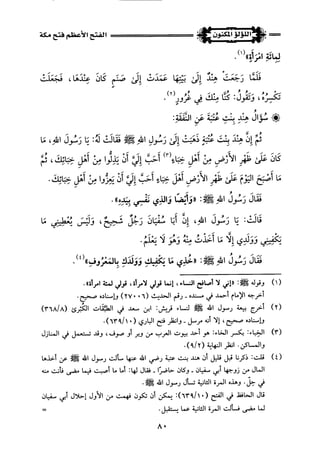 اللؤلؤ المكنون
الفتح الأعظم فتح مكة
لِمِائَةِ امْرَأَةٍ»(١).
فَلَمَّا رَجَعَتْ هِنْدٌ إِلَى بَيْتِهَا عَمَدَتْ إِلَى صَنَمٍ كَانَ عِنْدَهَا، فَجَعَلَتْ
تَكْسِرُهُ، وَتَقُولُ: كُنَّا مِنْكَ فِي غُرُورٍ(٢).
سُؤَالُ هِنْدِ بِنْتِ عُتْبَةَ عَنِ النَّفَقَةِ:
ثُمَّ إِنَّ هِنْدَ بِنْتَ عُتْبَةَ ذَهَبَتْ إِلَى رَسُولِ اللهِ ﷺ فَقَالَتْ لَهُ: يَا رَسُولَ اللهِ، مَا
كَانَ عَلَى ظَهْرِ الْأَرْضِ مِنْ أَهْلِ خِبَاءٍ(٣) أَحَبَّ إِلَيَّ أَنْ يَذِلُّوا مِنْ أَهْلِ خِبَائِكَ، ثُمَّ
مَا أَصْبَحَ الْيَوْمَ عَلَى ظَهْرِ الْأَرْضِ أَهْلُ خِبَاءٍ أَحَبَّ إِلَيَّ أَنْ يَعِزُّوا مِنْ أَهْلِ خِبَائِكَ.
فَقَالَ رَسُولُ اللهِ ﷺ: «وَأَيْضًا وَالَّذِي نَفْسِي بِيَدِهِ».
قَالَتْ: يَا رَسُولَ اللهِ، إِنَّ أَبَا سُفْيَانَ رَجُلٌ شَحِيحٌ، وَلَيْسَ يُعْطِينِي مَا
يَكْفِينِي وَوَلَدِي إِلَّا مَا أَخَذْتُ مِنْهُ وَهُوَ لَا يَعْلَمُ.
فَقَالَ رَسُولُ اللهِ ﷺ: «خُذِي مَا يَكْفِيكِ وَوَلَدَكِ بِالْمَعْرُوفِ»(٤).
(١) وقوله ﷺ: «إني لا أصافح النساء، إنما قولي لامرأة، قولي لمئة امرأة».
أخرجه الإمام أحمد في مسنده - رقم الحديث (٢٧٠٠٦) وإسناده صحيح.
(٢) أخرج بيعة رسول الله ﷺ لنساء قريش: ابن سعد في الطَّبَقَات الكُبْرَى (٣٦٨/٨)
وإسناده صحيح، إلا أنه مرسل - وانظر فتح الباري (٦٣٩/١٠).
(٣) الخِبَاء: بكسر الخاء: هو أحد بيوت العرب من وبر أو صوف، وقد تستعمل في المنازل
والمساكن. انظر النهاية (٩/٢).
(٤) قلت: ذكرنا قبل قليل أن هند بنت عتبة رضي الله عنها سألت رسول الله ﷺ عن أخذها
المال من زوجها أبي سفيان - وكان حاضرًا - فقال لها: أما ما أصبت فيما مضى فأنت منه
في حِل. وهذه المرة الثانية تسأل رسول الله ﷺ.
قال الحافظ في الفتح (٦٣٩/١٠): يمكن أن تكون فهمت من الأول إحلال أبي سفيان
لما مضى فسألت المرة الثانية عما يستقبل. =
٨٠